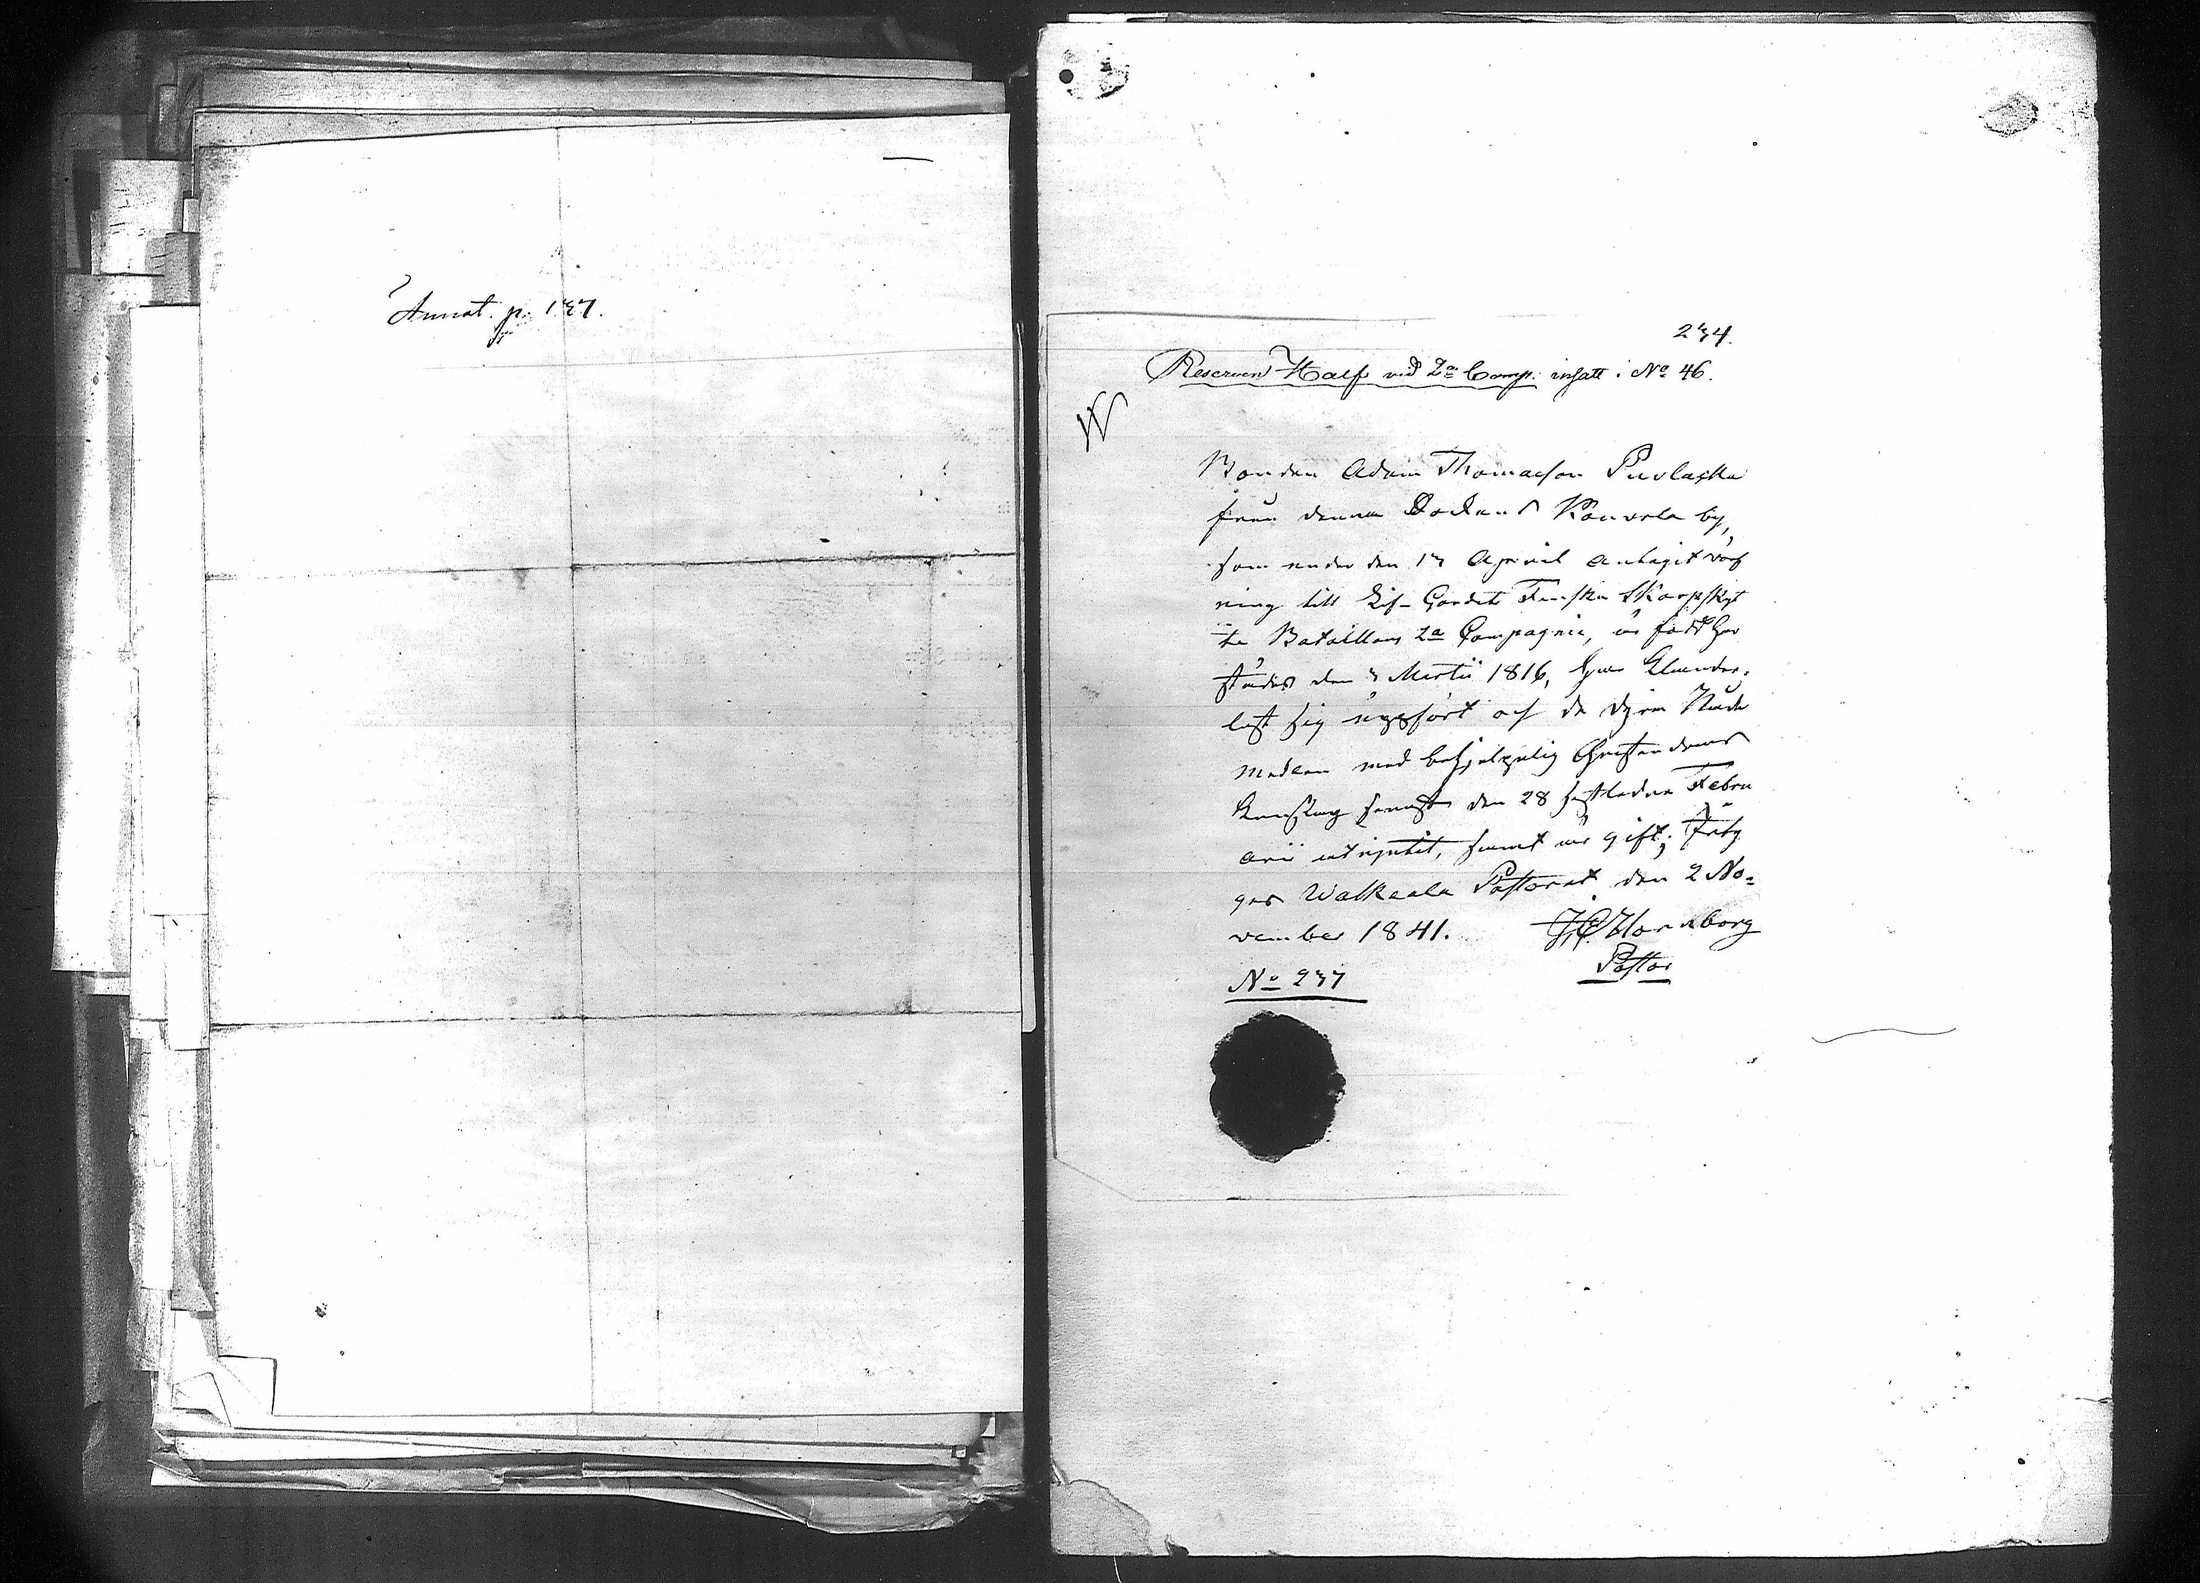 Annot. p. 137.
234.
Reserven Half vid 2a Comp. insatt i No 46.
Bonden Adam Thomasson Puolakka
från denna Sockens Kouvola by,
som under den 13 April antagit värf
ning till Lif-Gardets Finska Skarpskyt
te Bataillons 2a Compagnie, är född här
städes den 3 Martii 1816, har
sig uppfört och
med Christendoms
Kunskap senast den 28 sistledne Febru
arii samt är gift;
gas Walkeala Pastorat den 2 No=
vember 1841. Hornborg
Pastor
No 237